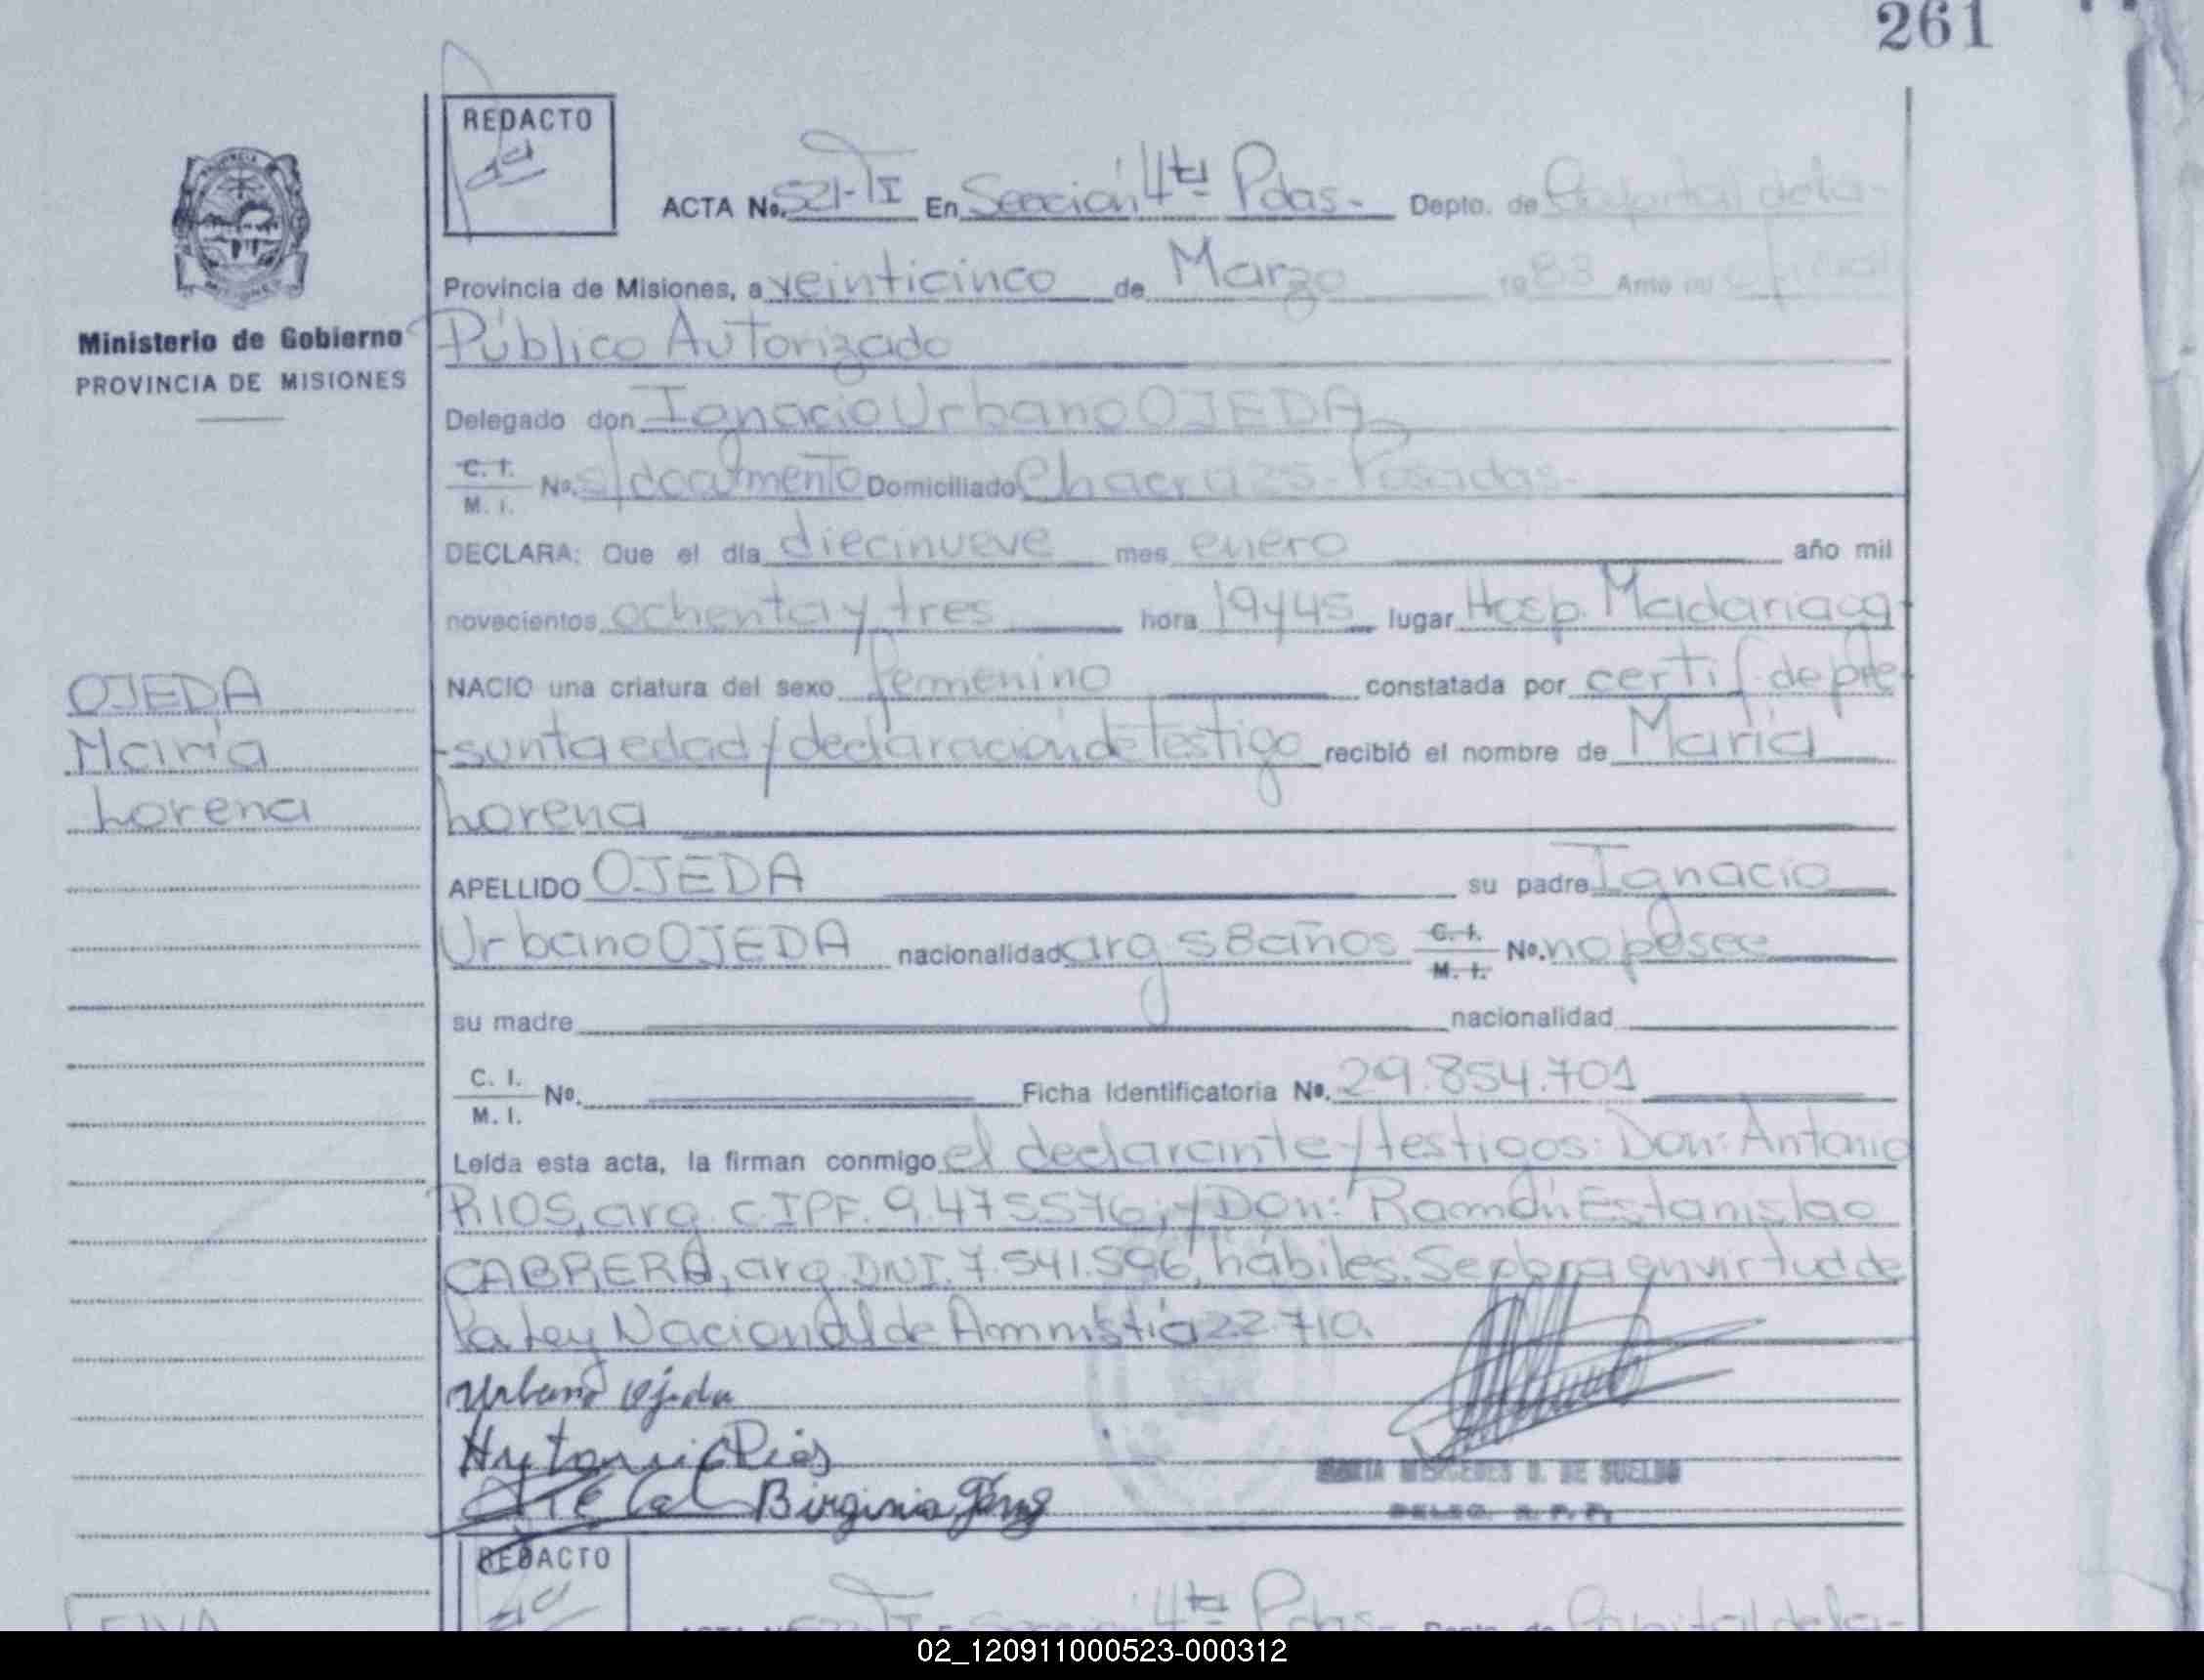 261
REDACTO
ACTA No. 521-TI En Sección 4ta Pdas.- Depto. de Capital de la-
Provincia de Misiones, a veinticinco de Marzo 1983 Ante mi oficial
Ministerio de Gobierno
PROVINCIA DE MISIONES
Público Autorizado
Delegado don Ignacio Urbano OJEDA
C. I. M. I. No. s/documento Domiciliado Chacra 25- Posadas-
DECLARA: Que el día diecinueve mes enero año mil
novecientos ochenta y tres hora 19y45 lugar Hosp. Madariaga
NACIO una criatura del sexo femenino constatada por certif de pre-
-sunta edad y declaración de testigo recibió el nombre de María
Lorena
OJEDA
María
Lorena
APELLIDO OJEDA su padre Ignacio
Urbano OJEDA nacionalidad arg 58 años C. I. M. I. No. no posee
su madre nacionalidad
C. I. M. I. No. Ficha Identificatoria No. 29.854.701
Leída esta acta, la firman conmigo el declarante y testigos: Don: Antonio
RIOS, arg. C.I.P.F. 9.475576; y Don: Ramón Estanislao
CABRERA, arg. DNI. 7.541.596, hábiles. Se obra en virtud de
la Ley Nacional de Ammistia 22.710.
Urbano Ojeda
Antonio Rios
Birginia
MARIA MERCEDES D. DE SUELDO
DELEG. R. P. P.
REDACTO
4ta Pdas- Depto. de Capital de la-
02_120911000523-000312